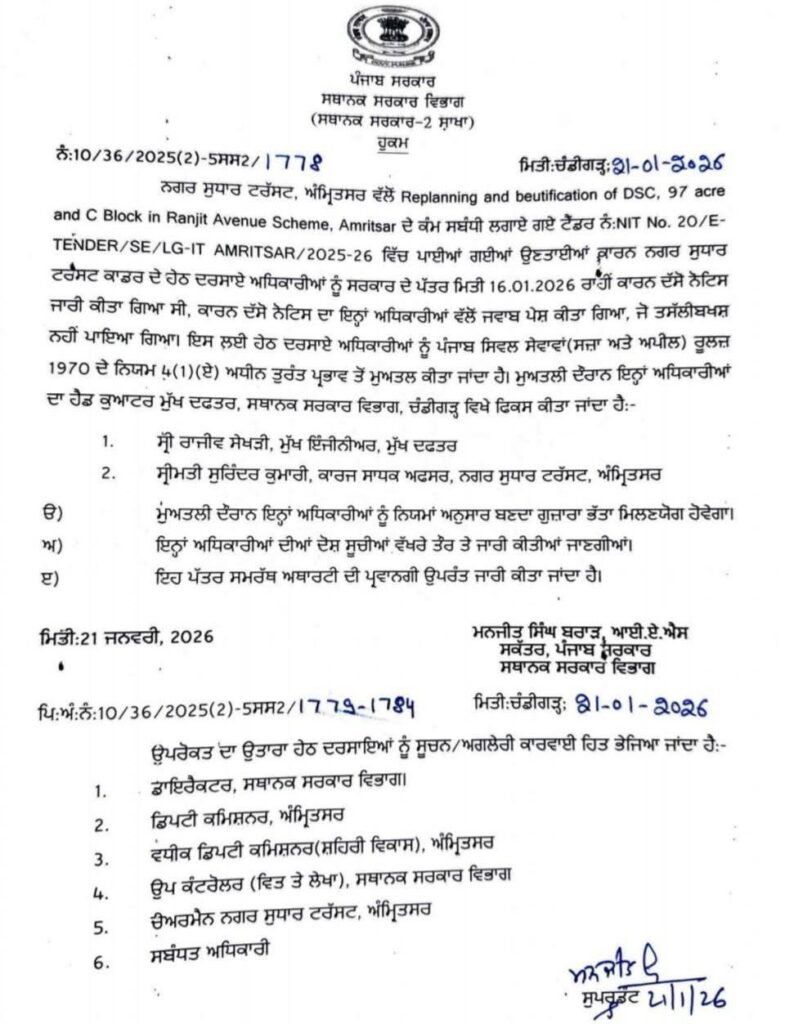 ਪੰਜਾਬ ਸਰਕਾਰ
ਸਥਾਨਕ ਸਰਕਾਰ ਵਿਭਾਗ
(ਸਥਾਨਕ ਸਰਕਾਰ-2 ਸ਼ਾਖਾ)
ਹੁਕਮ
ਨੰ:10/36/2025(2)-5ਸਸ2/1778 ਮਿਤੀ:ਚੰਡੀਗੜ੍ਹ;21-01-2026
ਨਗਰ ਸੁਧਾਰ ਟਰੱਸਟ, ਅੰਮ੍ਰਿਤਸਰ ਵੱਲੋਂ Replanning and beutification of DSC, 97 acre
and C Block in Ranjit Avenue Scheme, Amritsar ਦੇ ਕੰਮ ਸਬੰਧੀ ਲਗਾਏ ਗਏ ਟੈਂਡਰ ਨੰ:NIT No. 20/E-
TENDER/SE/LG-IT AMRITSAR/2025-26 ਵਿੱਚ ਪਾਈਆਂ ਗਈਆਂ ਉਣਤਾਈਆਂ ਕਾਰਨ ਨਗਰ ਸੁਧਾਰ
ਟਰੱਸਟ ਕਾਡਰ ਦੇ ਹੇਠ ਦਰਸਾਏ ਅਧਿਕਾਰੀਆਂ ਨੂੰ ਸਰਕਾਰ ਦੇ ਪੱਤਰ ਮਿਤੀ 16.01.2026 ਰਾਹੀਂ ਕਾਰਨ ਦੱਸੋ ਨੋਟਿਸ
ਜਾਰੀ ਕੀਤਾ ਗਿਆ ਸੀ, ਕਾਰਨ ਦੱਸੋ ਨੋਟਿਸ ਦਾ ਇਨ੍ਹਾਂ ਅਧਿਕਾਰੀਆਂ ਵੱਲੋਂ ਜਵਾਬ ਪੇਸ਼ ਕੀਤਾ ਗਿਆ, ਜੋ ਤਸੱਲੀਬਖਸ਼
ਨਹੀਂ ਪਾਇਆ ਗਿਆ। ਇਸ ਲਈ ਹੇਠ ਦਰਸਾਏ ਅਧਿਕਾਰੀਆਂ ਨੂੰ ਪੰਜਾਬ ਸਿਵਲ ਸੇਵਾਵਾਂ(ਸਜ਼ਾ ਅਤੇ ਅਪੀਲ) ਰੂਲਜ਼
1970 ਦੇ ਨਿਯਮ 4(1)(ਏ) ਅਧੀਨ ਤੁਰੰਤ ਪ੍ਰਭਾਵ ਤੋਂ ਮੁਅਤਲ ਕੀਤਾ ਜਾਂਦਾ ਹੈ। ਮੁਅਤਲੀ ਦੌਰਾਨ ਇਨ੍ਹਾਂ ਅਧਿਕਾਰੀਆਂ
ਦਾ ਹੈਡ ਕੁਆਟਰ ਮੁੱਖ ਦਫਤਰ, ਸਥਾਨਕ ਸਰਕਾਰ ਵਿਭਾਗ, ਚੰਡੀਗੜ੍ਹ ਵਿਖੇ ਫਿਕਸ ਕੀਤਾ ਜਾਂਦਾ ਹੈ:-
1. ਸ੍ਰੀ ਰਾਜੀਵ ਸੇਖੜੀ, ਮੁੱਖ ਇੰਜੀਨੀਅਰ, ਮੁੱਖ ਦਫਤਰ
2. ਸ੍ਰੀਮਤੀ ਸੁਰਿੰਦਰ ਕੁਮਾਰੀ, ਕਾਰਜ ਸਾਧਕ ਅਫਸਰ, ਨਗਰ ਸੁਧਾਰ ਟਰੱਸਟ, ਅੰਮ੍ਰਿਤਸਰ
ੳ) ਮੁਅਤਲੀ ਦੌਰਾਨ ਇਨ੍ਹਾਂ ਅਧਿਕਾਰੀਆਂ ਨੂੰ ਨਿਯਮਾਂ ਅਨੁਸਾਰ ਬਣਦਾ ਗੁਜ਼ਾਰਾ ਭੱਤਾ ਮਿਲਣਯੋਗ ਹੋਵੇਗਾ।
ਅ) ਇਨ੍ਹਾਂ ਅਧਿਕਾਰੀਆਂ ਦੀਆਂ ਦੋਸ਼ ਸੂਚੀਆਂ ਵੱਖਰੇ ਤੌਰ ਤੇ ਜਾਰੀ ਕੀਤੀਆਂ ਜਾਣਗੀਆਂ।
ੲ) ਇਹ ਪੱਤਰ ਸਮਰੱਥ ਅਥਾਰਟੀ ਦੀ ਪ੍ਰਵਾਨਗੀ ਉਪਰੰਤ ਜਾਰੀ ਕੀਤਾ ਜਾਂਦਾ ਹੈ।
ਮਿਤੀ:21 ਜਨਵਰੀ, 2026 ਮਨਜੀਤ ਸਿੰਘ ਬਰਾੜ, ਆਈ.ਏ.ਐਸ
ਸਕੱਤਰ, ਪੰਜਾਬ ਸਰਕਾਰ
ਸਥਾਨਕ ਸਰਕਾਰ ਵਿਭਾਗ
ਪਿ:ਅੰ:ਨੰ:10/36/2025(2)-5ਸਸ2/1779-1784 ਮਿਤੀ:ਚੰਡੀਗੜ੍ਹ; 21-01-2026
ਉਪਰੋਕਤ ਦਾ ਉਤਾਰਾ ਹੇਠ ਦਰਸਾਇਆਂ ਨੂੰ ਸੂਚਨ/ਅਗਲੇਰੀ ਕਾਰਵਾਈ ਹਿਤ ਭੇਜਿਆ ਜਾਂਦਾ ਹੈ:-
1. ਡਾਇਰੈਕਟਰ, ਸਥਾਨਕ ਸਰਕਾਰ ਵਿਭਾਗ।
2. ਡਿਪਟੀ ਕਮਿਸ਼ਨਰ, ਅੰਮ੍ਰਿਤਸਰ
3. ਵਧੀਕ ਡਿਪਟੀ ਕਮਿਸ਼ਨਰ(ਸ਼ਹਿਰੀ ਵਿਕਾਸ), ਅੰਮ੍ਰਿਤਸਰ
4. ਉਪ ਕੰਟਰੋਲਰ (ਵਿਤ ਤੇ ਲੇਖਾ), ਸਥਾਨਕ ਸਰਕਾਰ ਵਿਭਾਗ
5. ਚੇਅਰਮੈਨ ਨਗਰ ਸੁਧਾਰ ਟਰੱਸਟ, ਅੰਮ੍ਰਿਤਸਰ
6. ਸਬੰਧਤ ਅਧਿਕਾਰੀ
ਸੁਪਰਡੰਟ 21/1/26